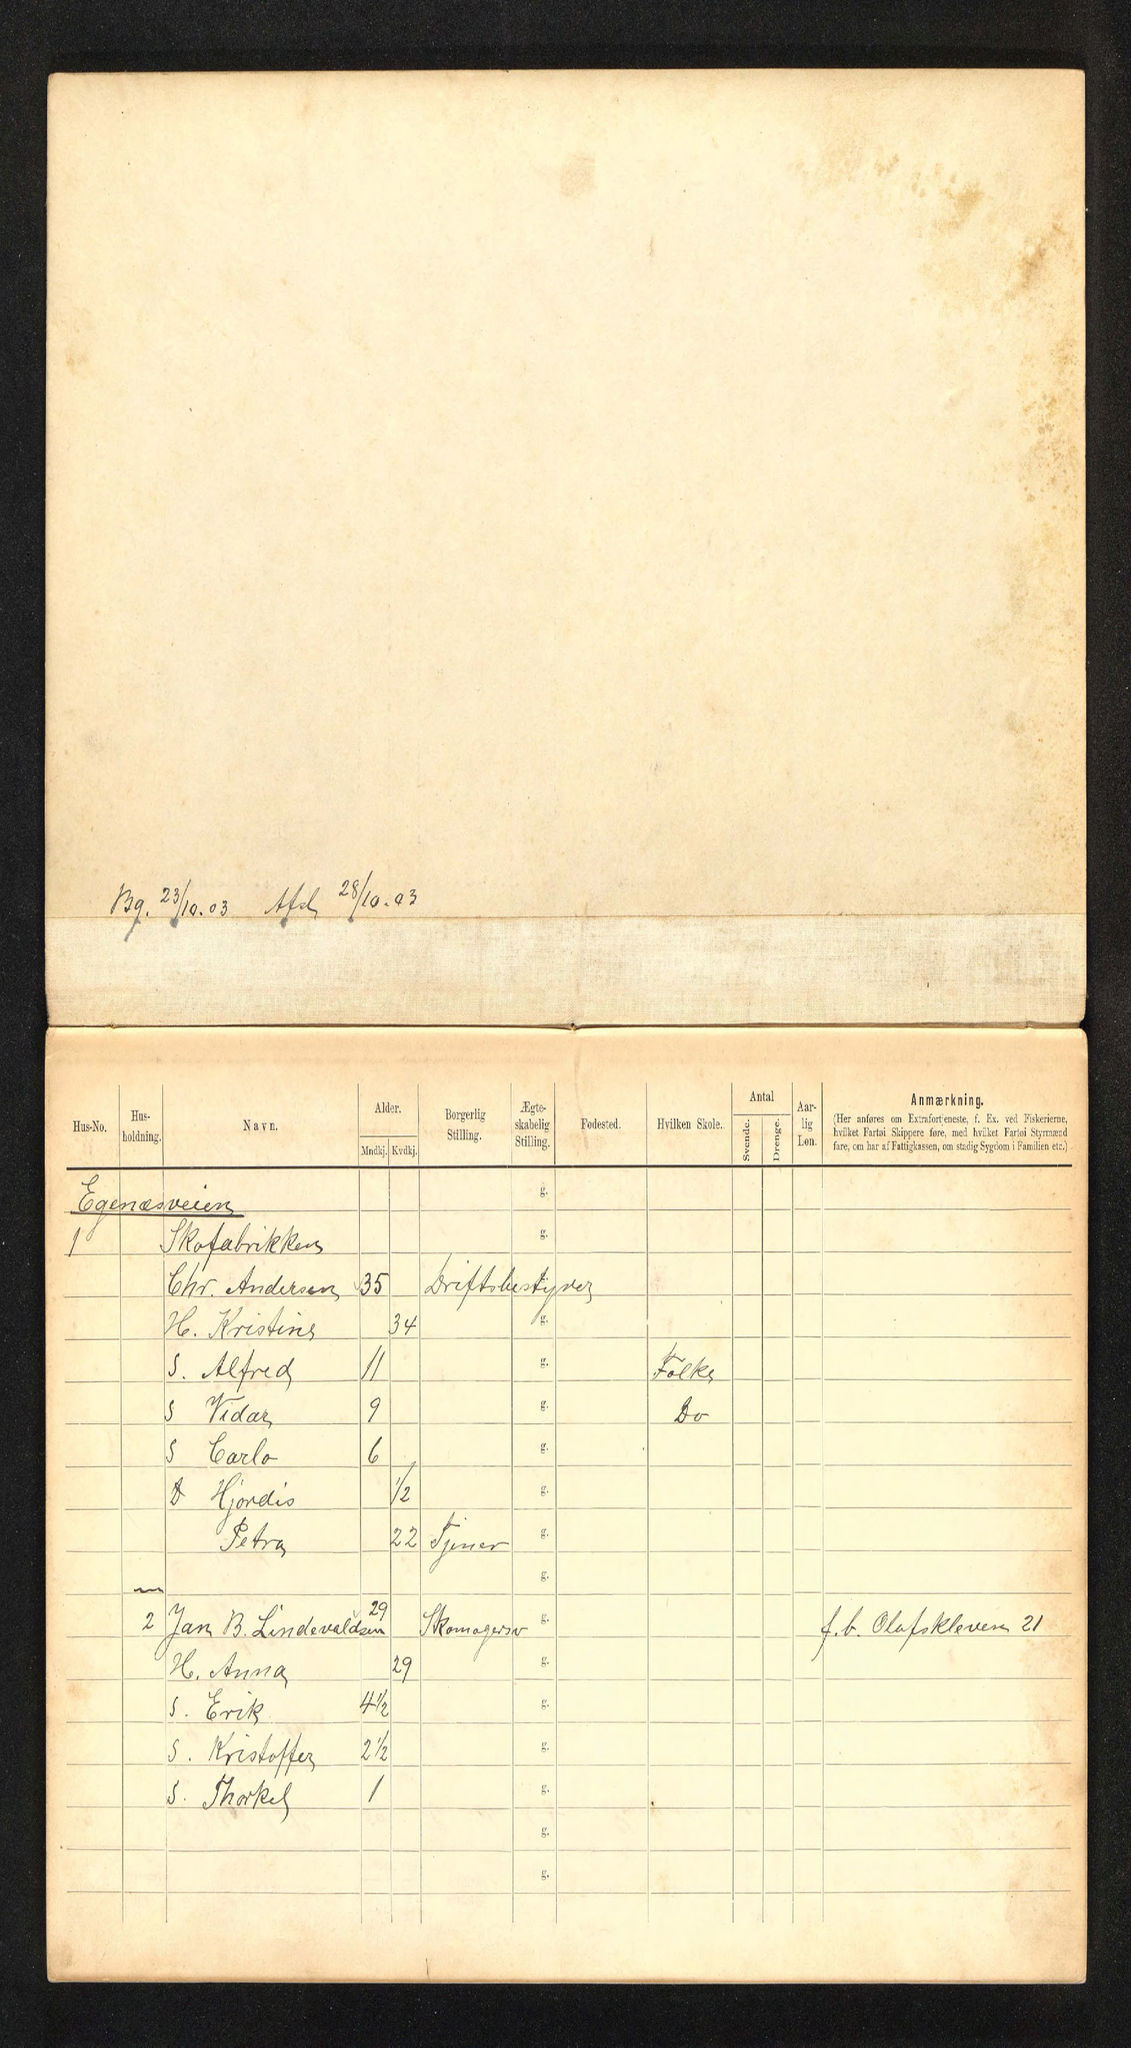 Bg. 23/10.03 Afsl. 28/10.03
Hus-No. Hus-holdning. Navn. Alder. Mndkj. Kvdkj. Borgerlig Stilling. Ægte-skabelig Stilling. Fødested. Hvilken Skole. Antal Svende. Drenge. Aar-lig Løn. Anmærkning.
(Her anføres om Extrafortjeneste, f. Ex. ved Fiskerierne, hvilket Fartøi Skippere føre, med hvilket Fartøi Styrmænd fare, om har af Fattigkassen, om stadig Sygdom i Familien etc.)
Egenæsveien g.
1 Skofabrikken g.
Chr. Andersen 35 Driftsbestyrer
H. Kristine 34 g.
S. Alfred 11 g. Folke
S Vidar 9 g. Do
S Carlo 6 g.
D Hjordis 1/2 g.
Petra 22 Tjener g.
g.
2 Jan B. Lindevaldsen 29 Skomagersv g. f.b. Olafskleven 21
H. Anna 29 g.
S. Erik 4 1/2 g.
S. Kristoffer 2 1/2 g.
S. Thorkel 1 g.
g.
g.